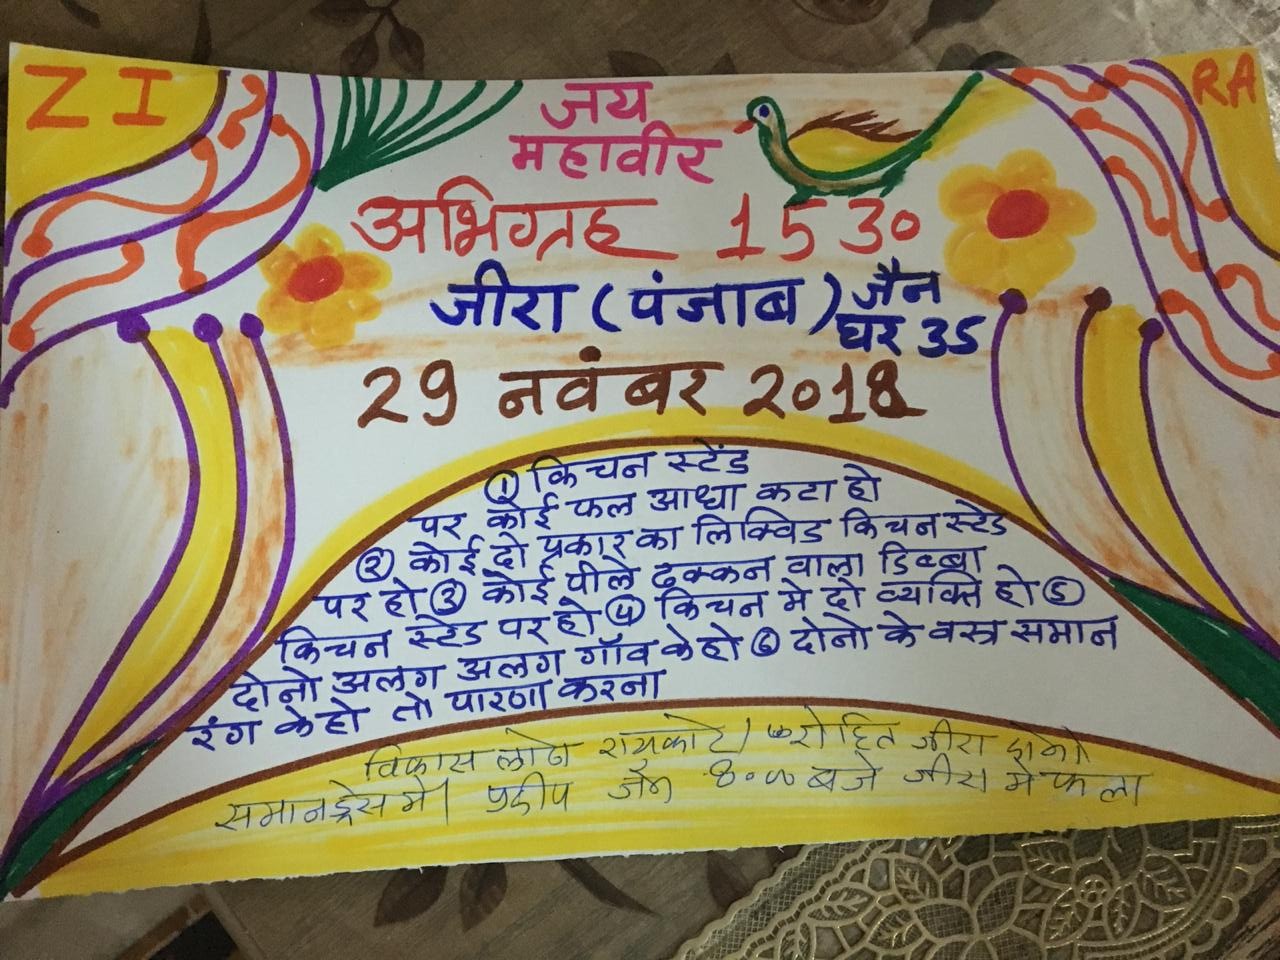 ZI
RA
जय
महावीर
अभिग्रह 1530
जीरा (पंजाब) जैन
घर 35
29 नवंबर 2018
① किचन स्टेंड
पर कोई फल आधा कटा हो
② कोई दो प्रकार का लिक्विड किचन स्टेड
पर हो ③ कोई पीले ढक्कन वाला डिब्बा
किचन स्टेड पर हो ④ किचन मे दो व्यक्ति हो ⑤
दोनो अलग अलग गॉव के हो ⑥ दोनो के वस्त्र समान
रंग के हो तो पारणा करना
विकास रायकोट / रोहित जीरा दोनो
समान ड्रेस मे। प्रदीप जैन 8.00 बजे जीरा मे फला